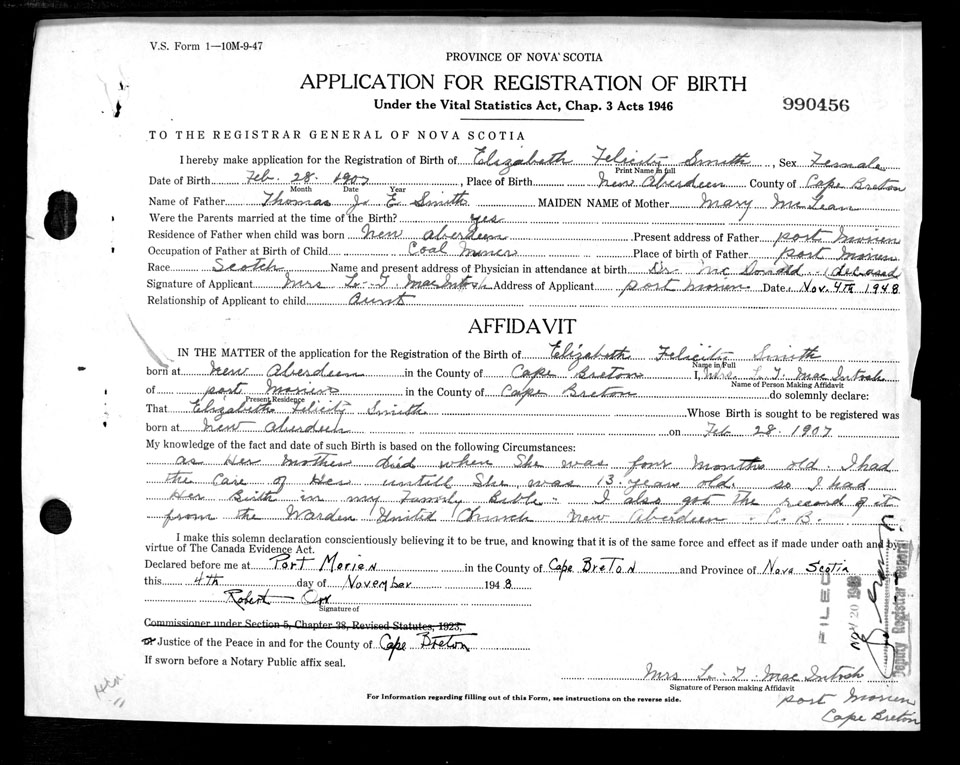 V.S. Form 1—10M-9-47
PROVINCE OF NOVA SCOTIA
APPLICATION FOR REGISTRATION OF BIRTH
Under the Vital Statistics Act, Chap. 3 Acts 1946
990456
TO THE REGISTRAR GENERAL OF NOVA SCOTIA
I hereby make application for the Registration of Birth of Elizabeth Felicity Smith, Sex Female
Print Name in full
Date of Birth Feb. 28. 1907, Place of Birth New Aberdeen County of Cape Breton
Month Date Year
Name of Father Thomas J. E Smith MAIDEN NAME of Mother Mary McLean
Were the Parents married at the time of the Birth? yes
Residence of Father when child was born New Aberdeen Present address of Father port Morien
Occupation of Father at Birth of Child Coal Miner Place of birth of Father port Morien
Race Scotch Name and present address of Physician in attendance at birth Dr Mc Donald (deceased
Signature of Applicant Mrs L. T MacIntosh Address of Applicant port Morien Date Nov. 4th 1948
Relationship of Applicant to child Aunt
AFFIDAVIT
IN THE MATTER of the application for the Registration of the Birth of Elizabeth Felicity Smith
Name in Full
born at New Aberdeen in the County of Cape Breton I, Mrs. L T Mac Intosh
Name of Person Making Affidavit
of port Morien in the County of Cape Breton do solemnly declare:
Present Residence
That Elizabeth Felicity Smith Whose Birth is sought to be registered was
born at New Aberdeen on Feb 28. 1907
My knowledge of the fact and date of such Birth is based on the following Circumstances:
as Her Mother died when She was four Months old. I had
the Care of Her untill She was 13 years old. so I had
Her Birth in my Family Bible - I also got the record of it
from the Warden United Church New Aberdeen. C. B.
I make this solemn declaration conscientiously believing it to be true, and knowing that it is of the same force and effect as if made under oath and by
virtue of The Canada Evidence Act.
Declared before me at Port Morien in the County of Cape Breton and Province of Nova Scotia
this 4th day of November 1948
Robert Orr
Signature of
Commissioner under Section 5, Chapter 38, Revised Statutes, 1923,
or Justice of the Peace in and for the County of Cape Breton
If sworn before a Notary Public affix seal.
FILED
NOV 20 1948
Deputy Registrar General
Mrs L. T Mac Intosh
Signature of Person making Affidavit
port Morien
Cape Breton
For Information regarding filling out of this Form, see instructions on the reverse side.